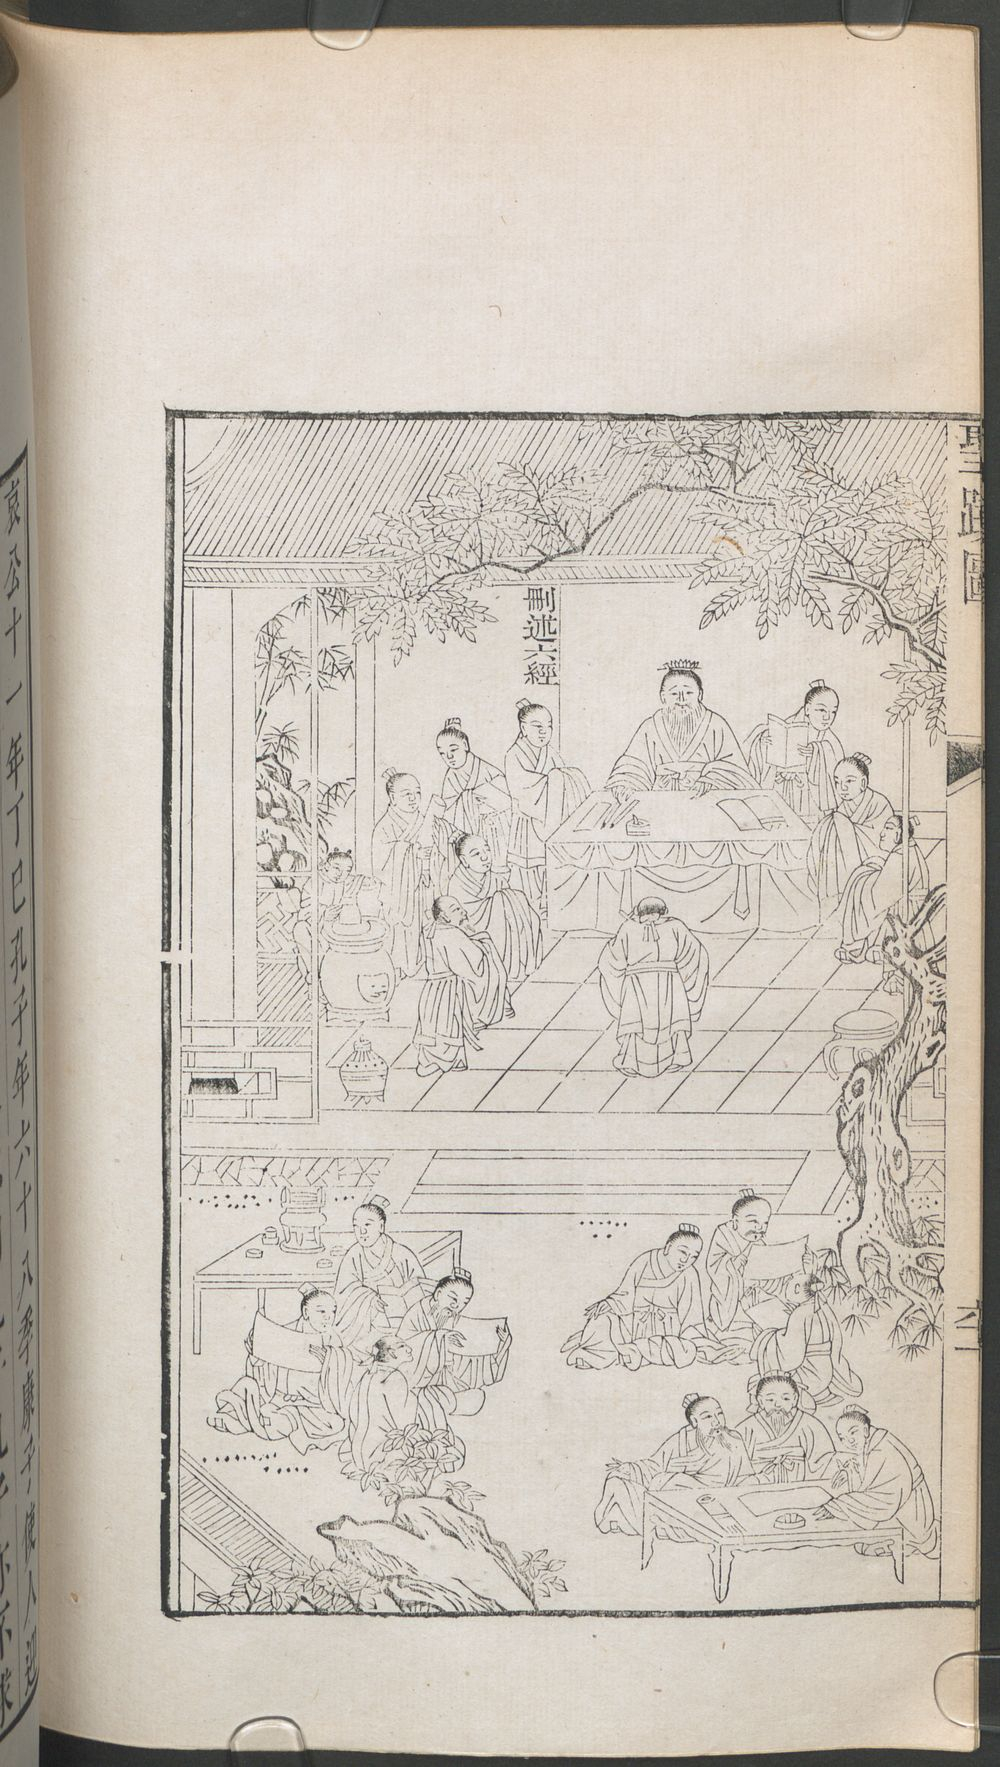 聖蹟圖
刪述六經
哀公十一年丁巳孔子年六十八季康子使人迎